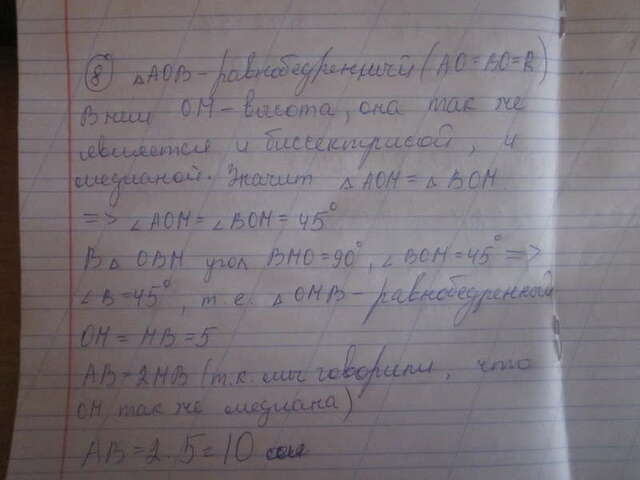 ⑧ △AOB - равнобедренный (AO=BO=R)
В нём OM - высота, она так же
является и биссектрисой, и
медианой. Значит △AOM=△BOM
=> ∠AOM=∠BOM=45°
В △OBM угол BMO=90°, ∠BOM=45° =>
∠B=45°, т.е. △OMB - равнобедренный
OM=MB=5
AB=2MB (т.к мы говорили, что
OM так же медиана)
AB=2·5=10 см